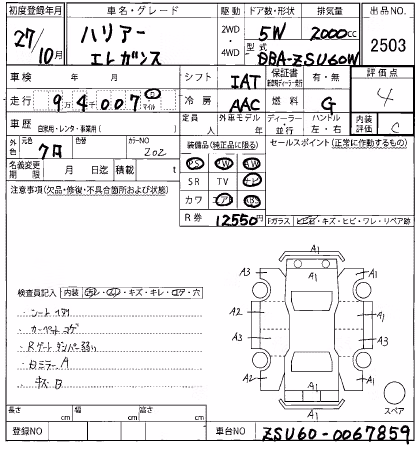 初度登録年月
車名・グレード
駆動
ドア数・形状
排気量
出品NO.
27
10月
ハリアー
エレガンス
2WD
・
4WD
5W
2000cc
型式
DBA-ZSU60W
2503
車検
年 月
シフト
IAT
保証書
有・無
評価点
4
走行
9万4千007
km
マイル
冷房
AAC
燃料
G
車歴
自家用・レンタ・事業用( )
定員
人
外車モデル
年
ディーラー
・並行
ハンドル
左・右
内装
評価
C
外色
元色
クロ
色替
カラーNO
202
装備品(純正品に限る)
セールスポイント(正常に作動するもの)
PS PW AW
名義変更
期限
月 日迄
積載
t
SR TV ナビ
注意事項(欠品・修復・不具合箇所および状態)
カワ エアB ABS
R券
12550円
Fガラス ヒビ・キズ・ヒビ・ワレ・リペア跡
A1
A1
A1
A3
A1
検査員記入
内装
A2
A1
A2
A3
A2
A1
A1
シートイタミ
カーペットコゲ
Rゲートダンパー弱い
ドミラーA
キズ B
スペア
長さ
cm
幅
cm
高さ
cm
登録NO
車台NO
ZSU60-0067859